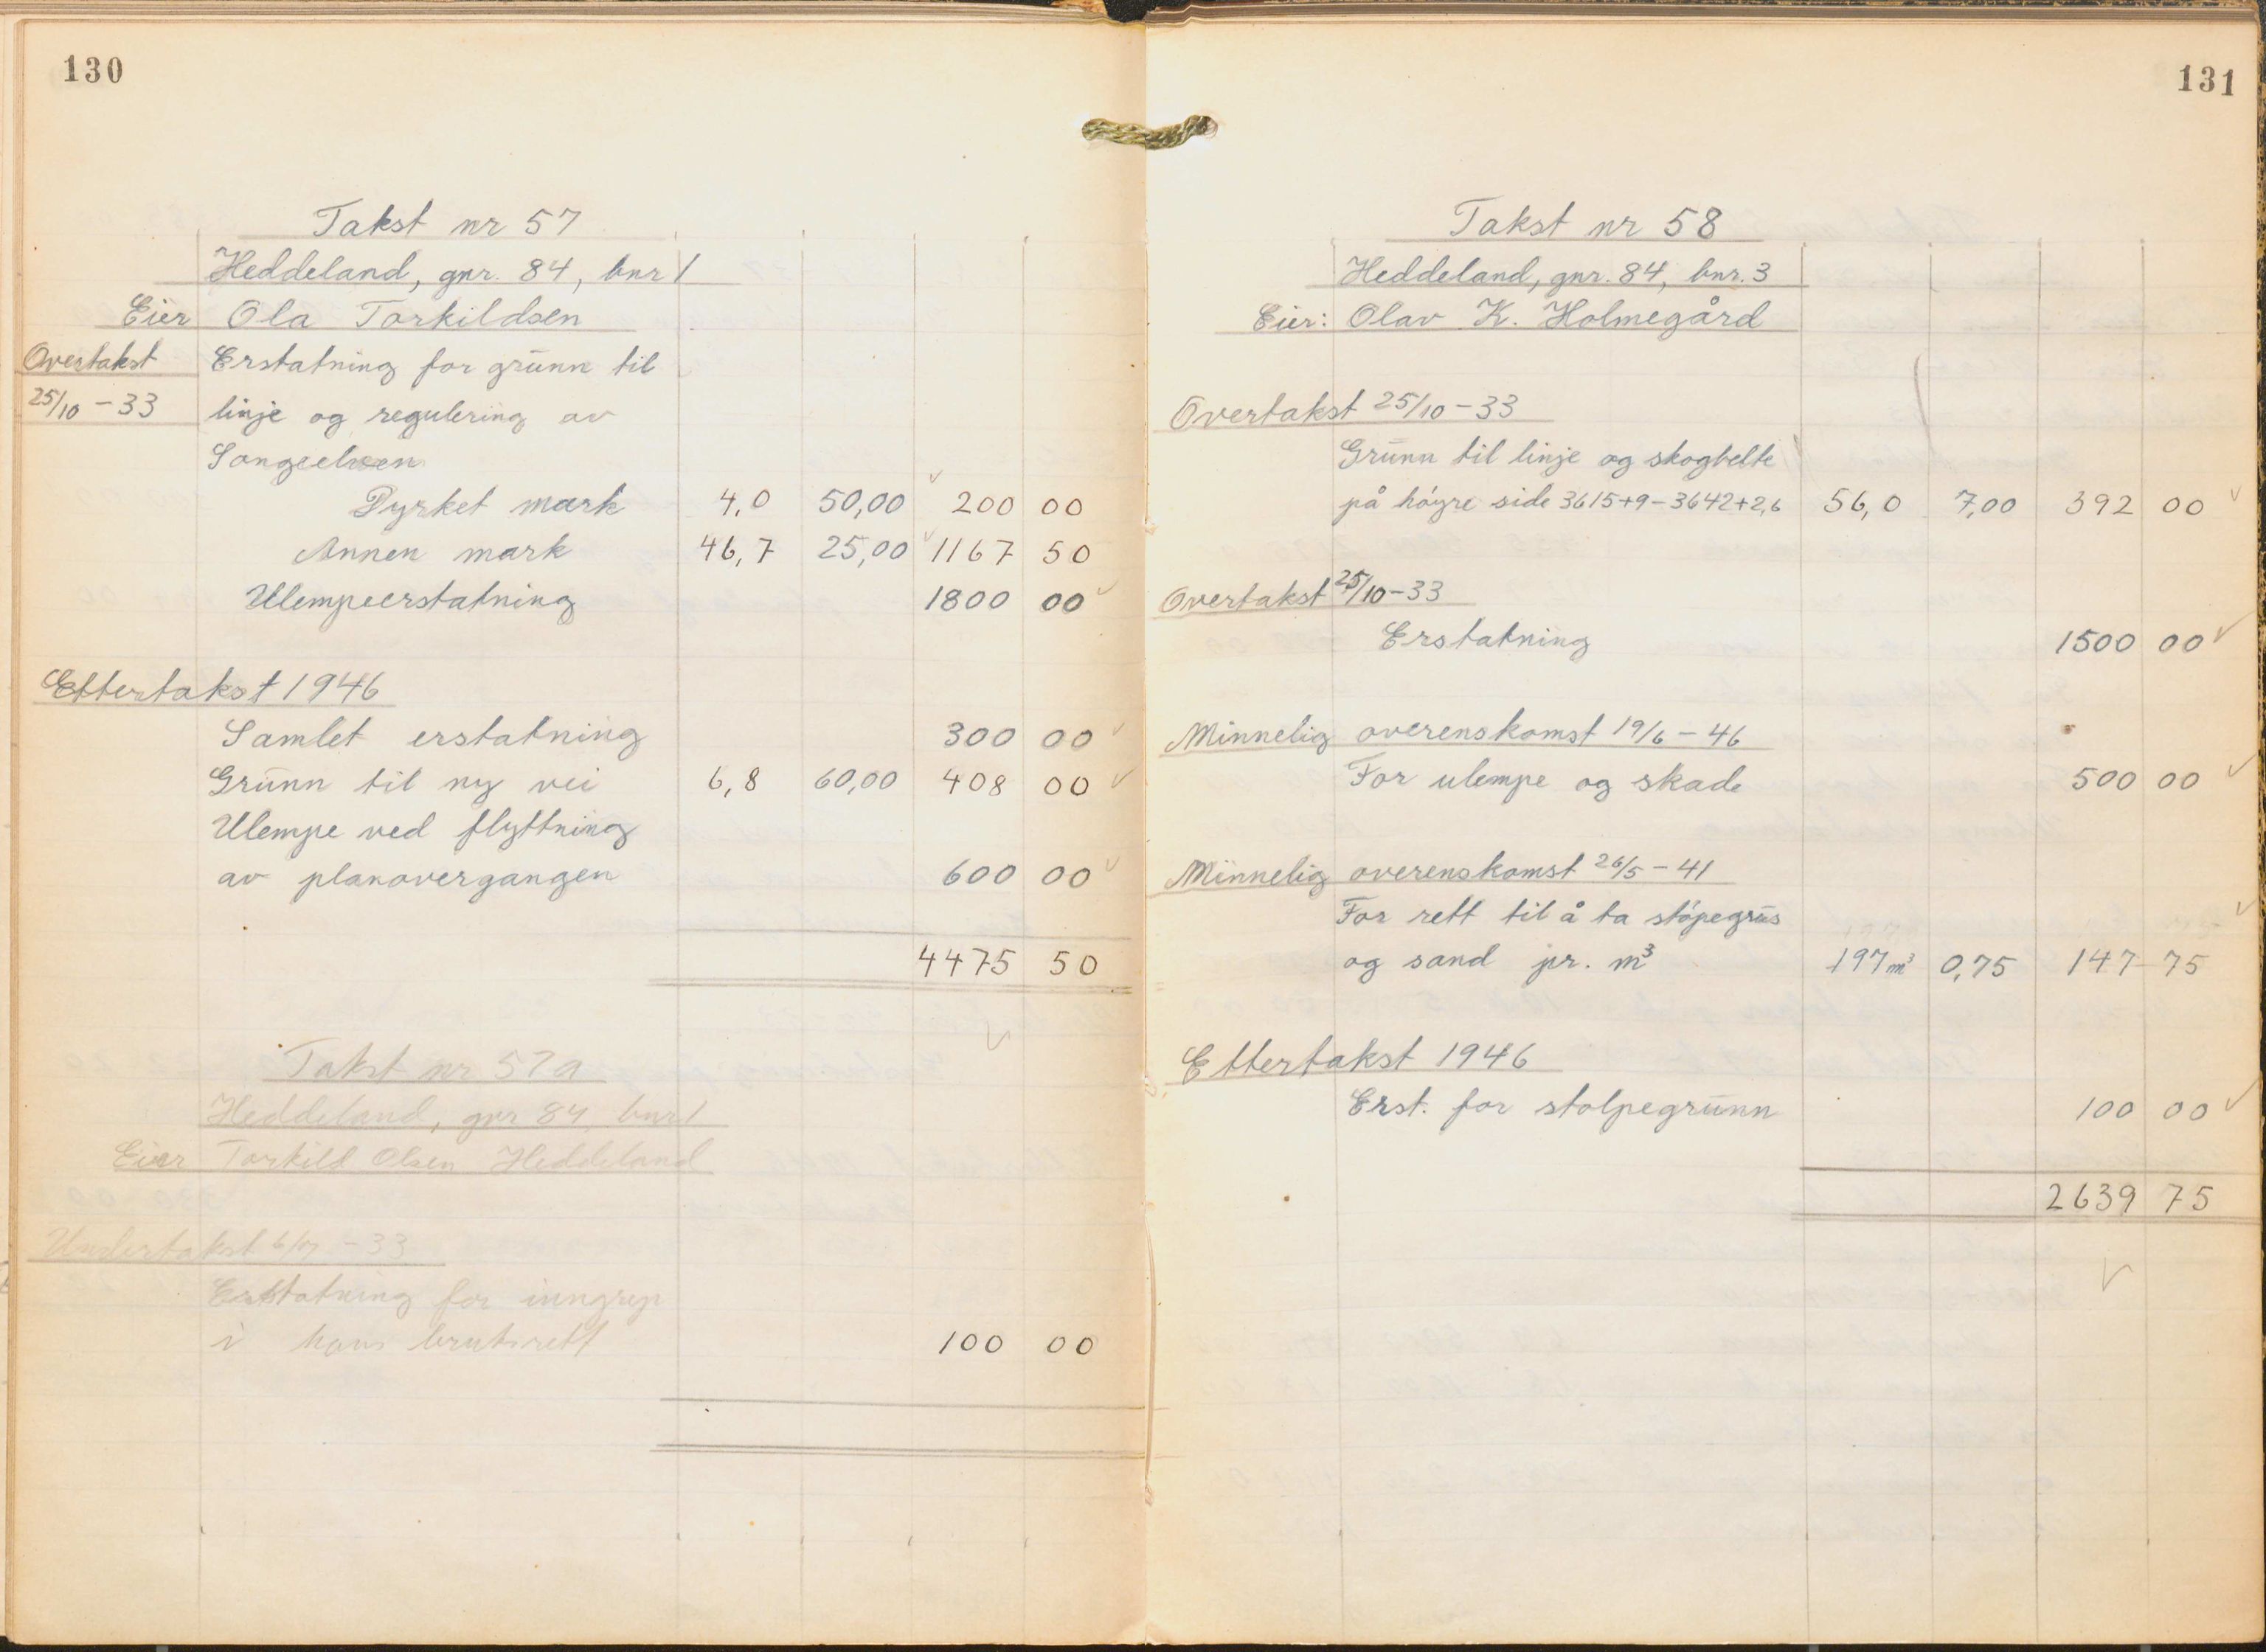 130
Takst nr 57
Heddeland, gnr. 84, bnr 1
Eier Ola Torkildsen
Overtakst Erstatning for grunn til
25/10 - 33 linje og regulering av
Songeelven
Dyrket mark 4,0 50,00 200 00
Annen mark 46,7 25,00 1167 50
Ulempeerstatning 1800 00
Ettertakst 1946
Samlet erstatning 300 00
Grunn til ny vei 6,8 60,00 408 00
Ulempe ved flyttning
av planovergangen 600 00
4475 50
Takst nr 57a
Heddeland, gnr 84, bnr 1
Eier Torkild Olsen Heddeland
Undertakst 6/7 - 33
Erstatning for inngrep
i hans bruksrett 100 00
131
Takst nr 58
Heddeland, gnr. 84, bnr. 3
Eier: Olav K. Holmegård
Overtakst 25/10 - 33
Grunn til linje og skogbelte
på høyre side 3615+9 - 3642+2,6 56,0 7,00 392 00
Overtakst 25/10 - 33
Erstatning 1500 00
Minnelig overenskomst 19/6 - 46
For ulempe og skade 500 00
Minnelig overenskomst 26/5 - 41
For rett til å ta støpegrus
og sand pr. m³ 197 m³ 0,75 147 75
Ettertakst 1946
Erst. for stolpegrunn 100 00
2639 75